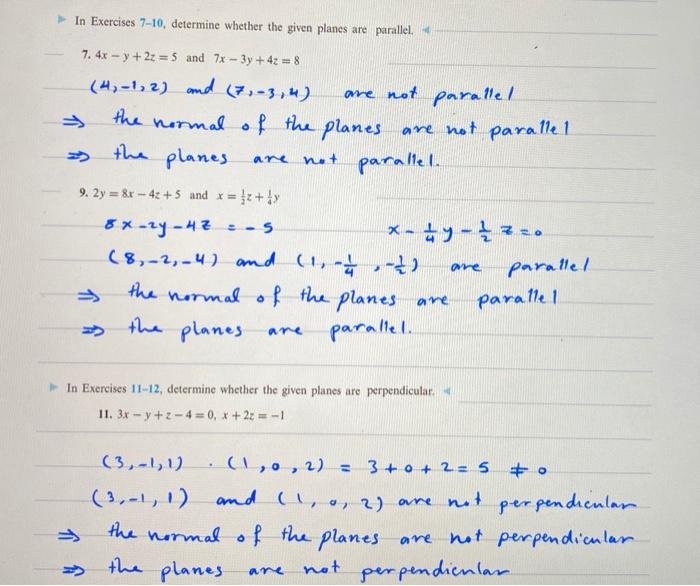 In Exercises 7–10, determine whether the given planes are parallel.
7. 4x − y + 2z = 5 and 7x − 3y + 4z = 8
(4,-1,2) and (7,-3,4) are not parallel
⇒ the normal of the planes are not parallel
⇒ the planes are not parallel.
9. 2y = 8x − 4z + 5 and x = ½z + ¼y
8x-2y-4z = -5 x - ¼y - ½z = 0
(8,-2,-4) and (1, -¼, -½) are parallel
⇒ the normal of the planes are parallel
⇒ the planes are parallel.
In Exercises 11–12, determine whether the given planes are perpendicular.
11. 3x − y + z − 4 = 0, x + 2z = −1
(3,-1,1) · (1,0,2) = 3+0+2=5 ≠ 0
(3,-1,1) and (1,0,2) are not perpendicular
⇒ the normal of the planes are not perpendicular
⇒ the planes are not perpendicular